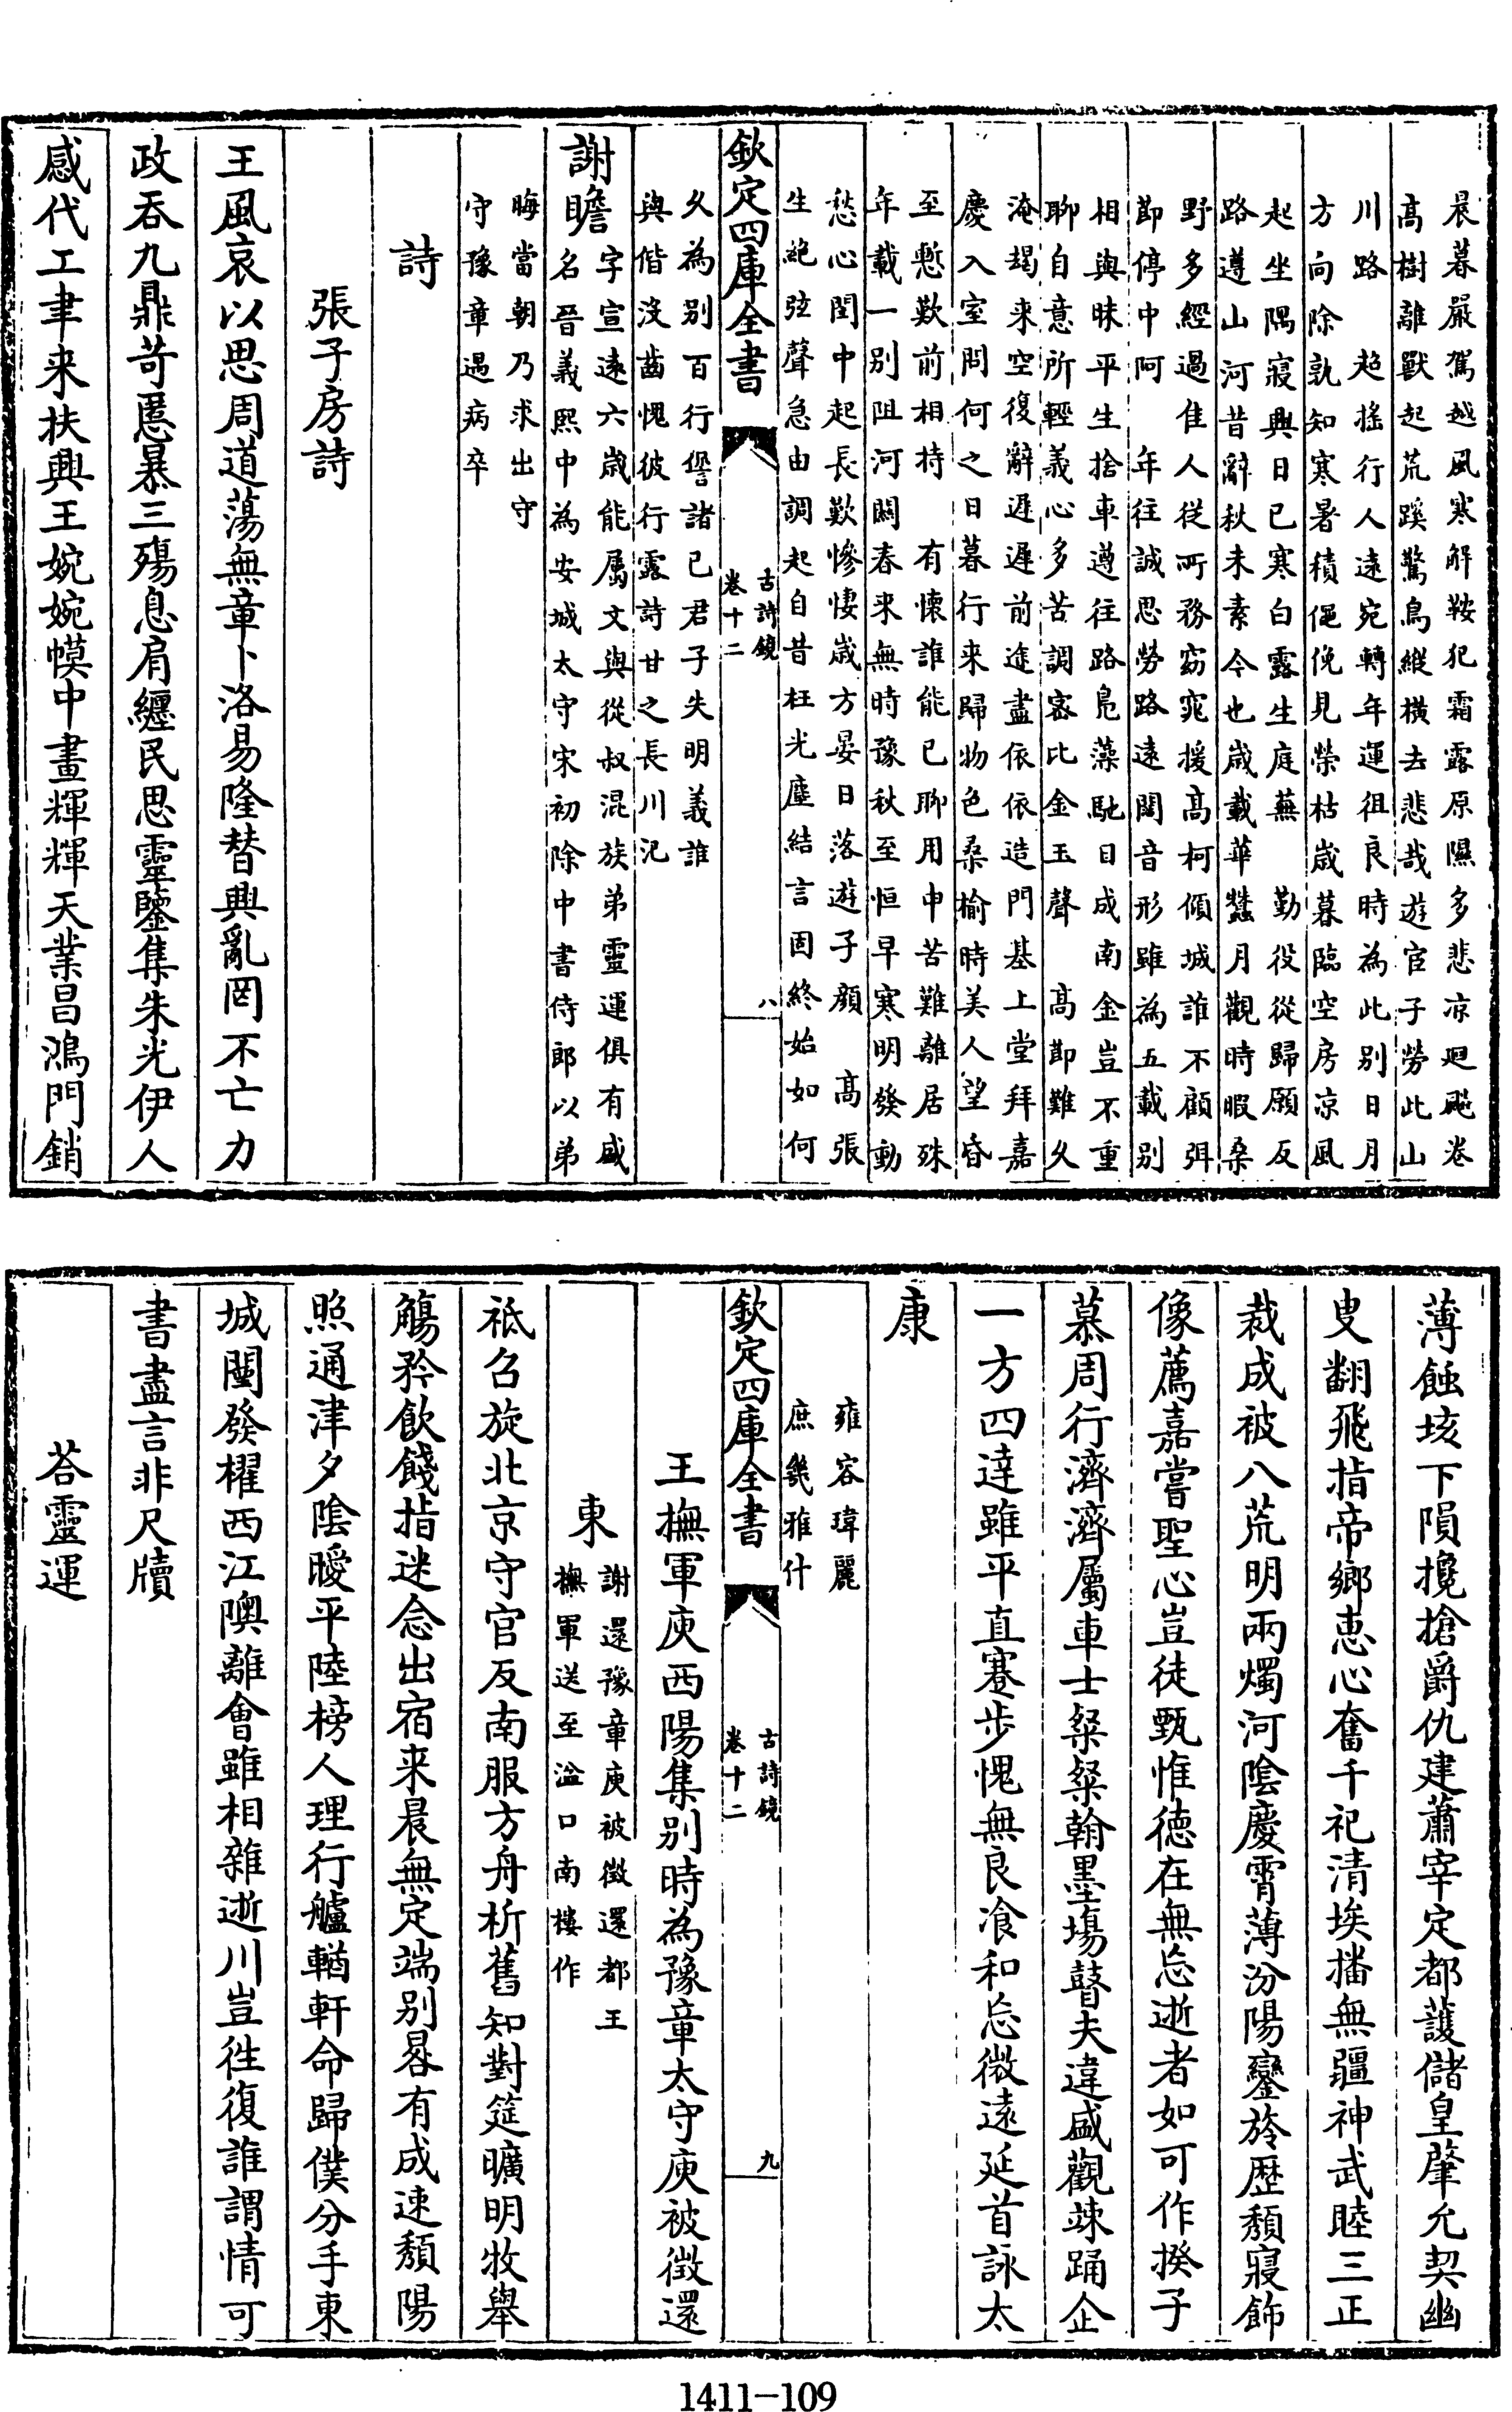 晨暮嚴駕越風寒解鞍犯霜露原隰多悲凉迴飈卷
髙樹離獸起荒蹊驚鳥縱橫去悲哉遊宦子勞此山
川路　超搖行人遠宛轉年運徂良時為此别日月
方向除孰知寒暑積僶俛見榮枯嵗暮臨空房凉風
起坐隅寢興日已寒白露生庭蕪　勤役從歸願反
路遵山河昔辭秋未素今也嵗載華蠶月觀時暇桑
野多經過佳人從所務窈窕援髙柯傾城誰不顧弭
節停中阿　年往誠思勞路遠闊音形雖為五載别
相與昧平生捨車遵往路鳬藻馳目成南金豈不重
聊自意所輕義心多苦調密比金玉聲　髙節難久
淹朅来空復辭遲遲前途盡依依造門基上堂拜嘉
慶入室問何之日暮行来歸物色桑榆時美人望昏
至慙歎前相持　有懷誰能已聊用申苦難離居殊
年載一别阻河闗春来無時豫秋至恒早寒明發動
愁心閨中起長歎慘悽嵗方晏日落遊子顔　髙張
生絶弦聲急由調起自昔枉光塵結言固終始如何
欽定四庫全書
古詩鏡
卷十二
八
久為别百行諐諸已君子失明義誰
與偕沒齒愧彼行露詩甘之長川汜
謝瞻
字宣逺六歲能属文與從叔混族弟靈運俱有盛
名晉義熙中為安城太守宋初除中書侍郎以弟
晦當朝乃求出守
守豫章遇病卒
詩
張子房詩
王風哀以思周道蕩無章卜洛易隆替興亂罔不亡力
政吞九鼎苛慝暴三殤息肩纒民思靈鑒集朱光伊人
感代工聿来扶興王婉婉幙中畫輝輝天業昌鴻門銷
薄蝕垓下隕攙搶爵仇建蕭宰定都䕶儲皇肇允契幽
叟翻飛指帝鄉惠心奮千祀清埃播無疆神武睦三正
裁成被八荒明兩燭河陰慶霄薄汾陽鑾旍歴頽寢飾
像薦嘉嘗聖心豈徒甄惟徳在無忘逝者如可作揆子
慕周行濟濟屬車士粲粲翰墨塲瞽夫違盛觀竦踊企
一方四達雖平直蹇步愧無良飡和忘微遠延首詠太
康
雍容瑋麗
庶幾雅什
欽定四庫全書
古詩鏡
卷十二
九
王撫軍庾西陽集别時為豫章太守庾被徴還
東
謝還豫章庾被徴還都王
撫軍送至湓口南樓作
祗召旋北京守官反南服方舟析舊知對筵曠明牧舉
觴矜飲餞指迷念出宿来晨無定端别晷有成速頽陽
照通津夕陰曖平陸榜人理行艫輶軒命歸僕分手東
城闉發櫂西江隩離會雖相雜逝川豈徃復誰謂情可
書盡言非尺牘
荅靈運
1411-109